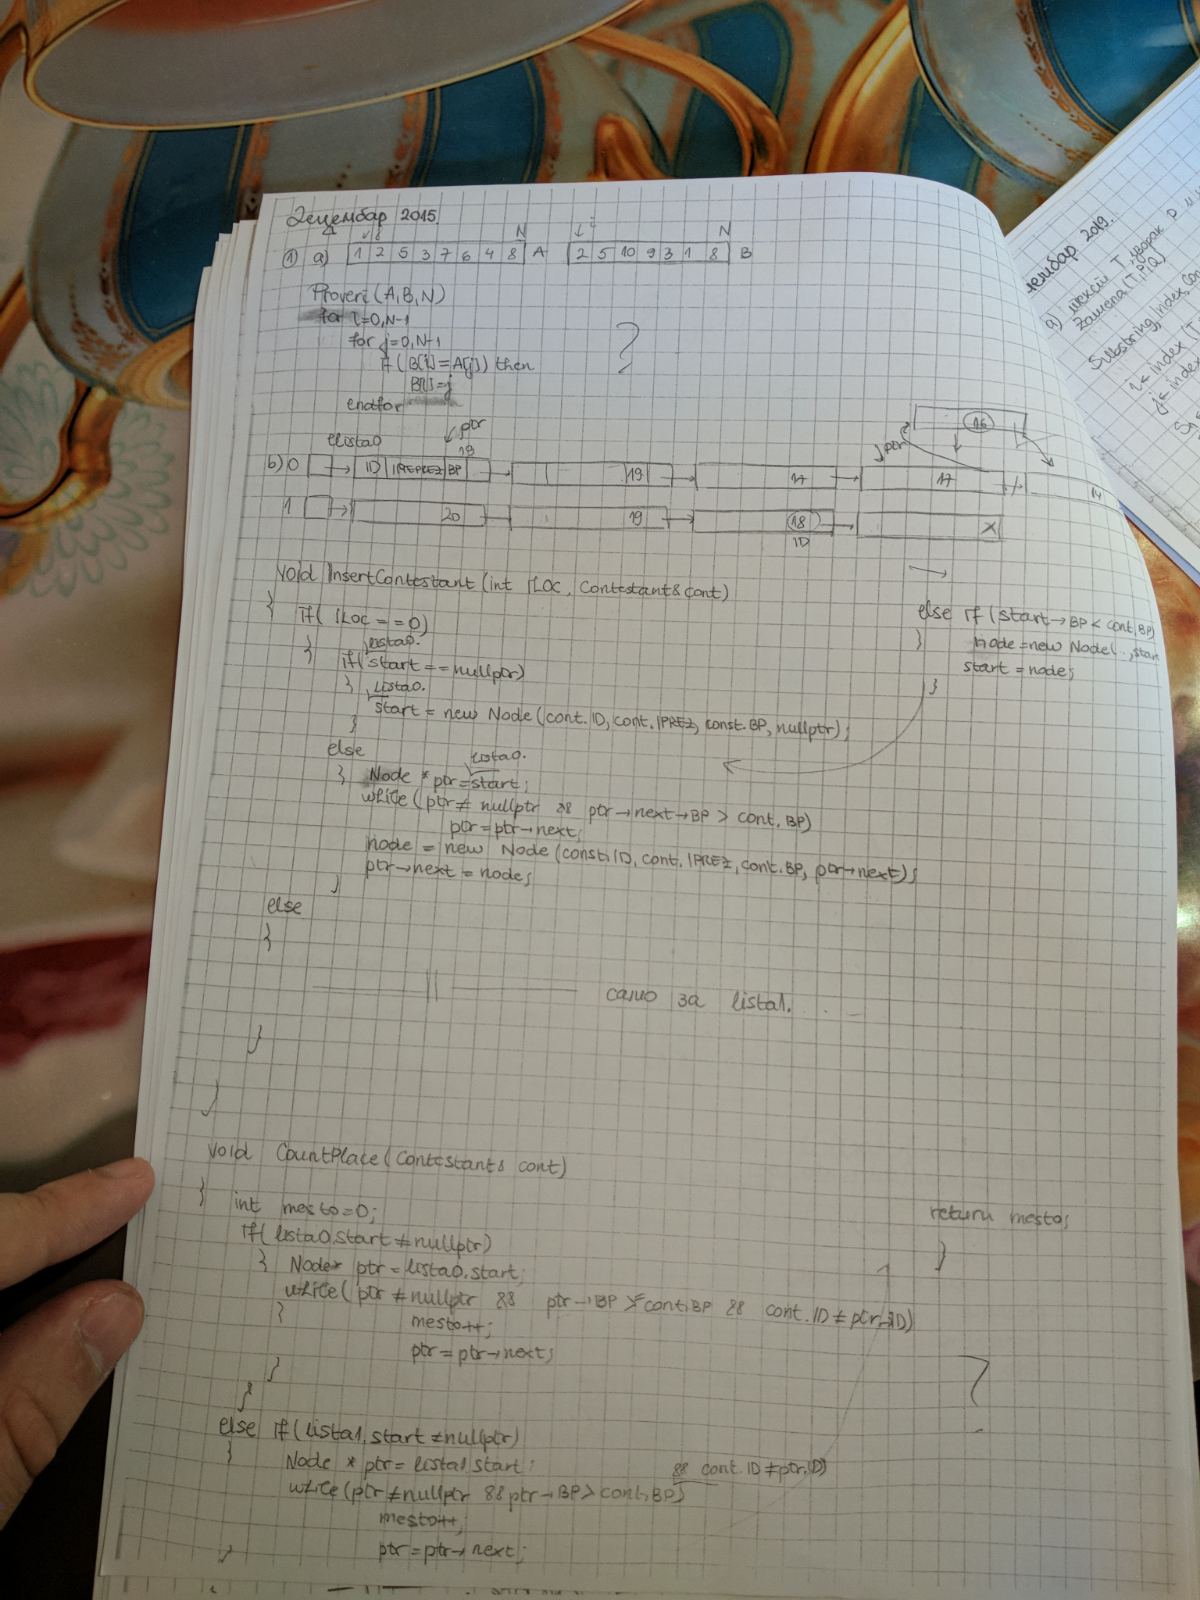 Децембар 2015
① а) 1 2 5 3 7 6 4 8 A 2 5 10 9 3 1 8 B
N N
i
Proveri (A,B,N)
for i=0,N-1
for j=0,N-1
if (B[i]=A[j]) then
B[i]=j
endfor
?
lista0 ptr
b) 0 ID IPREPREZ BP 19 19 17 17 14
ptr 16
1 20 19 18
ID
void InsertContestant (int ILOC, Contestant& cont)
{ if( ILOC == 0)
{ if(lista0.start == nullptr)
{ lista0.start = new Node (cont.ID, cont.IPREZ, const.BP, nullptr);
}
else if (start→BP < cont.BP)
{ node = new Node(..,start
start = node;
}
else
{ Node * ptr = lista0.start;
while (ptr ≠ nullptr && ptr→next→BP > cont.BP)
ptr = ptr→next;
node = new Node (const.ID, cont.IPREZ, cont.BP, ptr→next);
ptr→next = node;
}
else
{
—— || —— само за lista1.
}
}
void CountPlace (Contestant& cont)
{ int mesto=0;
if( lista0.start ≠ nullptr)
{ Node* ptr = lista0.start;
while ( ptr ≠ nullptr && ptr→BP > cont.BP && cont.ID ≠ ptr→ID)
{ mesto++;
ptr = ptr→next;
}
}
else if ( lista1.start ≠ nullptr)
{ Node * ptr = lista1.start;
while (ptr ≠ nullptr && ptr→BP > cont.BP) && cont.ID ≠ ptr.ID)
mesto++;
ptr = ptr→next;
}
return mesto;
}
?
2019.
а) текст T, узорак P и
Замена (T,P,Q)
Substring, index, con
i← index (T
j← index